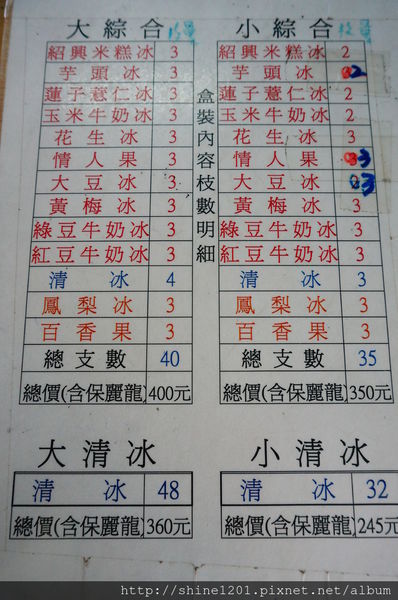 大綜合
紹興米糕冰 3
芋頭冰 3
蓮子薏仁冰 3
玉米牛奶冰 3
花生冰 3
情人果 3
大豆冰 3
黃梅冰 3
綠豆牛奶冰 3
紅豆牛奶冰 3
清冰 4
鳳梨冰 3
百香果 3
總支數 40
總價(含保麗龍) 400元
盒裝內容枝數明細
小綜合
紹興米糕冰 2
芋頭冰 2
蓮子薏仁冰 2
玉米牛奶冰 2
花生冰 3
情人果 3
大豆冰 3
黃梅冰 3
綠豆牛奶冰 3
紅豆牛奶冰 3
清冰 3
鳳梨冰 3
百香果 3
總支數 35
總價(含保麗龍) 350元
大清冰
清冰 48
總價(含保麗龍) 360元
小清冰
清冰 32
總價(含保麗龍) 245元
http://shine1201.pixnet.net/album